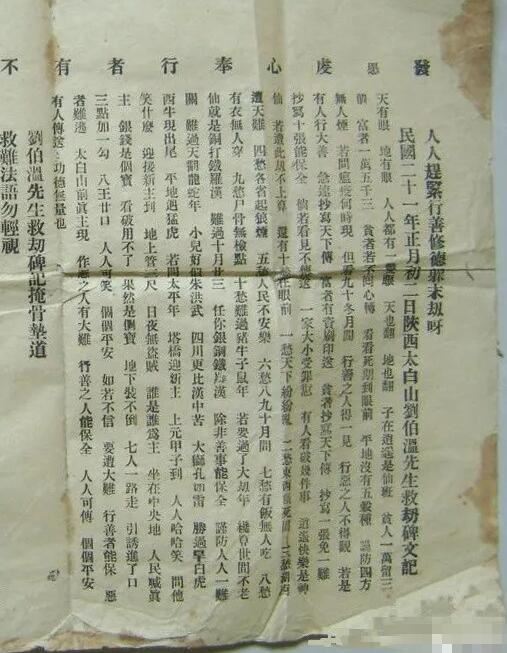 發虔心奉行者有不
人人趕緊行善修德躲末刼呀
民國二十一年正月初二日陝西太白山劉伯溫先生救刼碑文記
天有眼 地有眼 人人都有一雙眼 天也翻 地也翻 子在逍遙是仙班 貧人一萬留三
富者一萬五千三 貧者若不回心轉 看看死期到眼前 平地沒有五穀種 謹防四方
無人煙 若問瘟疫何時現 但看九十冬月間 行善之人得一見 行惡之人不得觀 若是
有人行大善 急速抄寫天下傳 富者有資刷印送 貧者抄寫天下傳 抄寫一張免一難
抄寫十張能保全 倘若看見不傳送 一家大小受罪愆 有人看破幾件事 逍遙快樂是神
仙 若遭此刼不上算 還有十愁在眼前 一愁天下紛紛亂 二愁東西餓死 三愁湖南
遭大難 四愁各省起狼煙 五愁人民不安樂 六愁八九十月間 七愁有飯無人吃 八愁
有衣無人穿 九愁尸骨無檢點 十愁難過豬牛子鼠年 若要過了大刼年 世間不老
仙就是銅打鐵羅漢 難過十月廿三 任你銀鋼鐵漢 除非善事能保全 謹防人人一難
關 難過天翻龍蛇年 小兒好似朱洪武 四川更比漢中苦 大獅吼如雷 勝過擎白虎
西牛現出尾 平地遇猛虎 若問太平年 塔橋迎新主 上元甲子到 人人哈哈笑 問他
笑什麼 迎接新主到 地上管三尺 日夜無盜賊 誰是誰為主 坐在中央地 人民喊眞
主 銀錢是個寶 看破用不了 果然是個寶 地下裝不倒 七人一路走 引誘進了口
三點加一勾 八王廿口 人人可笑 個個平安 如若不信 要遭大難 行善者能保 惡
者難逃 太白山前眞主現 作惡之人有大難 行善之人能保全 人人可傳 個個平安
有人傳送 功德無量也
劉伯溫先生救刼碑記掩骨墊道
救難法語勿輕視